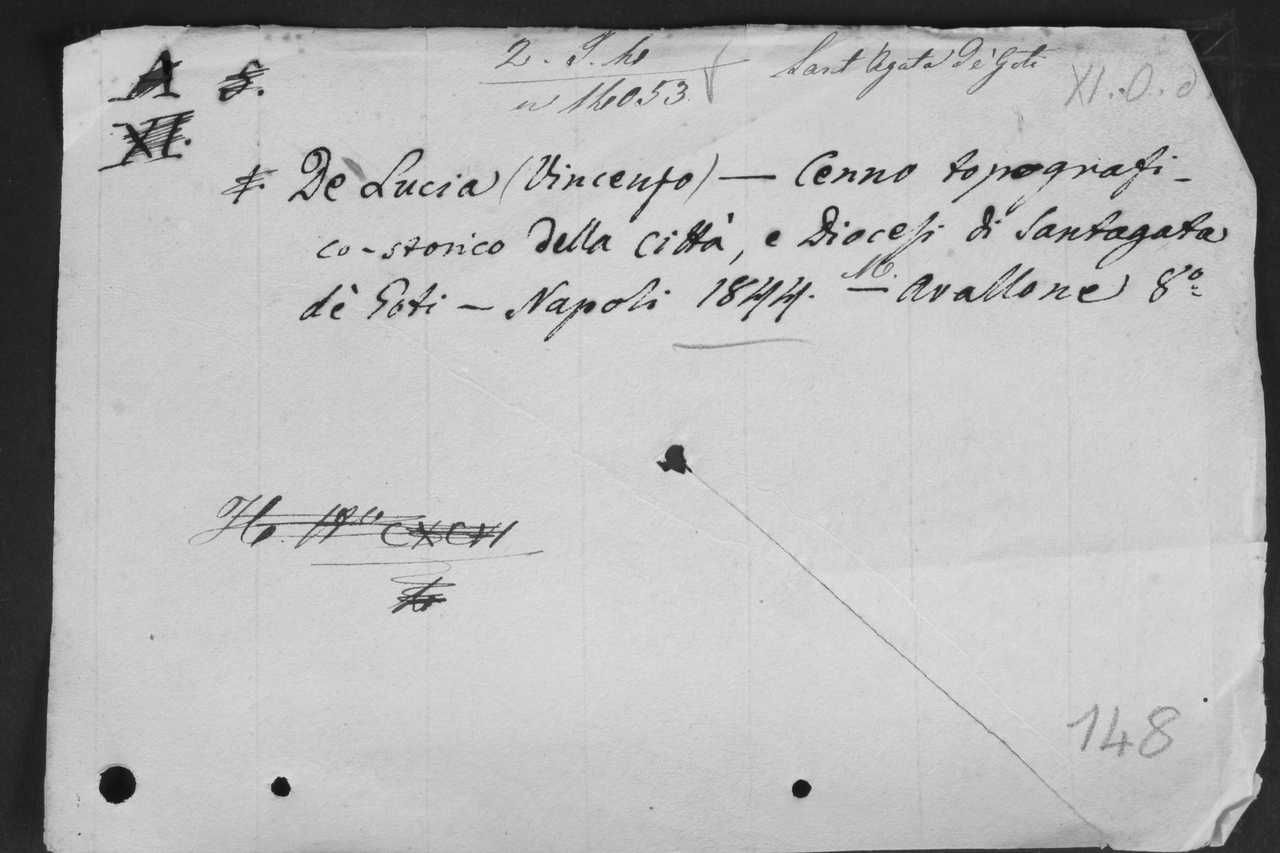 A
XI.
Sant'Agata De' Goti
XI. D. d
De Lucia (Vincenzo) — Cenno topografi-
co-storico della Città, e Diocesi di Santagata
dè Goti — Napoli 1844. — M. Avallone 8º
CXCVI
148